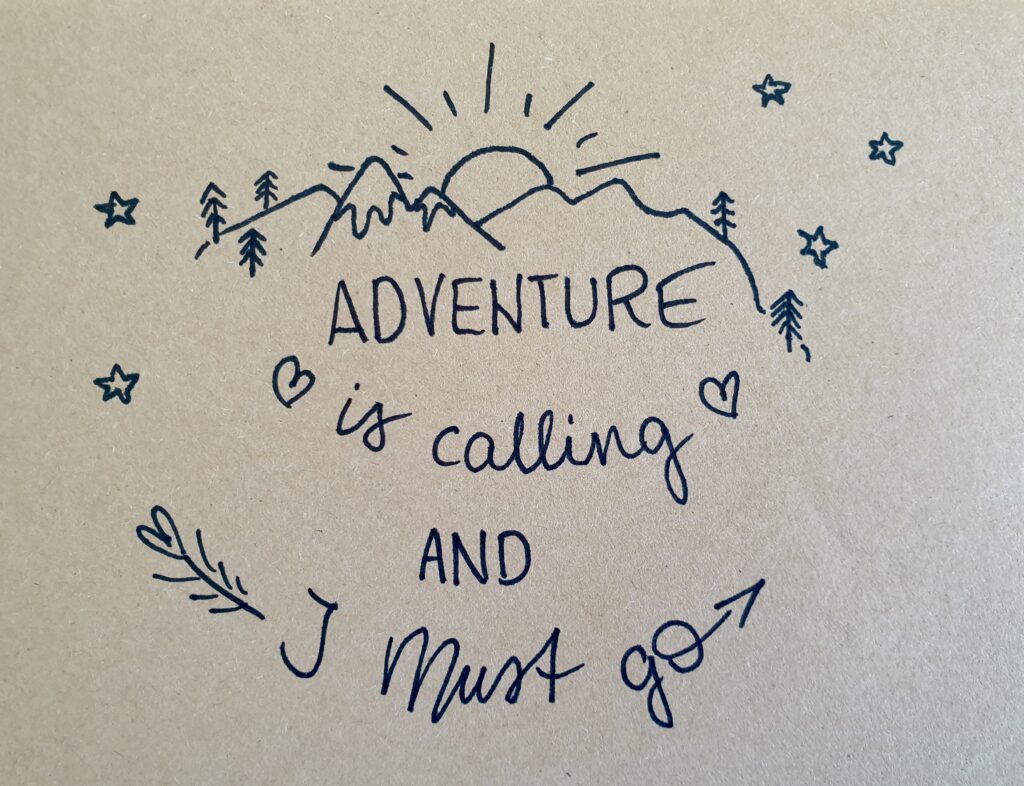 ADVENTURE
is calling
AND
I must go